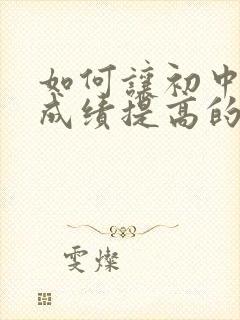 如何讓初中
成绩提高的
雯燦